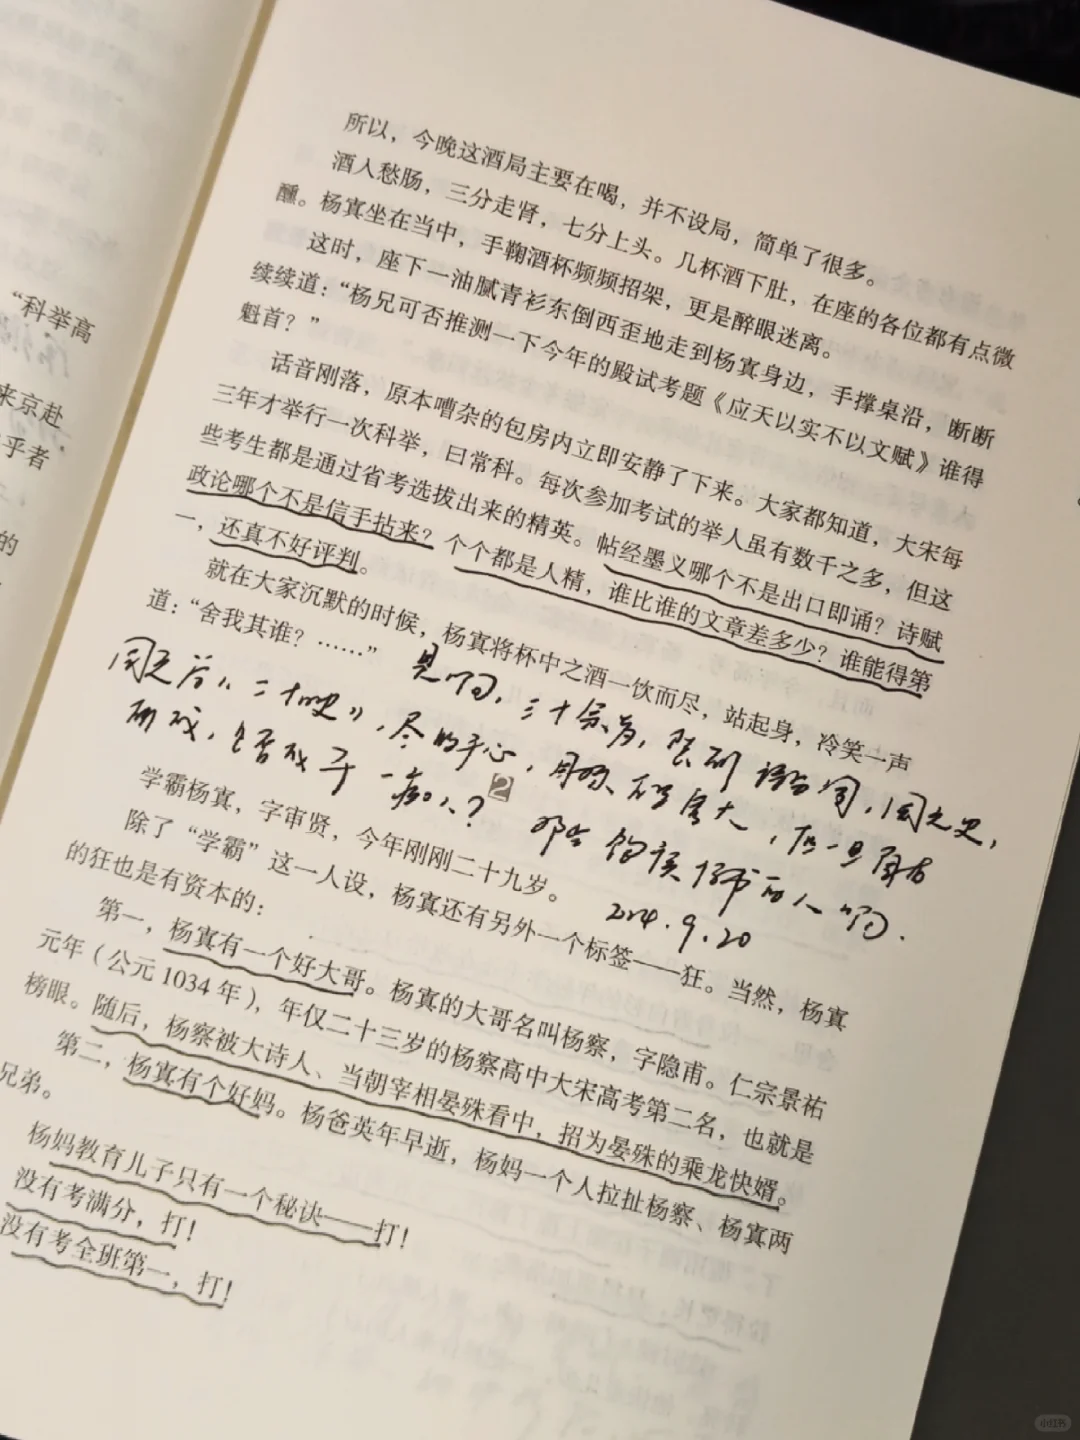 “科举高
来京赴
乎者
的
所以，今晚这酒局主要在喝，并不设局，简单了很多。
酒入愁肠，三分走肾，七分上头。几杯酒下肚，在座的各位都有点微
醺。杨寘坐在当中，手鞠酒杯频频招架，更是醉眼迷离。
这时，座下一油腻青衫东倒西歪地走到杨寘身边，手撑桌沿，断断
续续道：“杨兄可否推测一下今年的殿试考题《应天以实不以文赋》谁得
魁首？”
话音刚落，原本嘈杂的包房内立即安静了下来。大家都知道，大宋每
三年才举行一次科举，曰常科。每次参加考试的举人虽有数千之多，但这
些考生都是通过省考选拔出来的精英。帖经墨义哪个不是出口即诵？诗赋
政论哪个不是信手拈来？个个都是人精，谁比谁的文章差多少？谁能得第
一，还真不好评判。
就在大家沉默的时候，杨寘将杯中之酒一饮而尽，站起身，冷笑一声
道：“舍我其谁？……”
2
2024.9.20
学霸杨寘，字审贤，今年刚刚二十九岁。
除了“学霸”这一人设，杨寘还有另外一个标签——狂。当然，杨寘
的狂也是有资本的：
第一，杨寘有一个好大哥。杨寘的大哥名叫杨察，字隐甫。仁宗景祐
元年（公元1034年），年仅二十三岁的杨察高中大宋高考第二名，也就是
榜眼。随后，杨察被大诗人、当朝宰相晏殊看中，招为晏殊的乘龙快婿。
第二，杨寘有个好妈。杨爸英年早逝，杨妈一个人拉扯杨察、杨寘两
兄弟。
杨妈教育儿子只有一个秘诀——打！
没有考满分，打！
没有考全班第一，打！